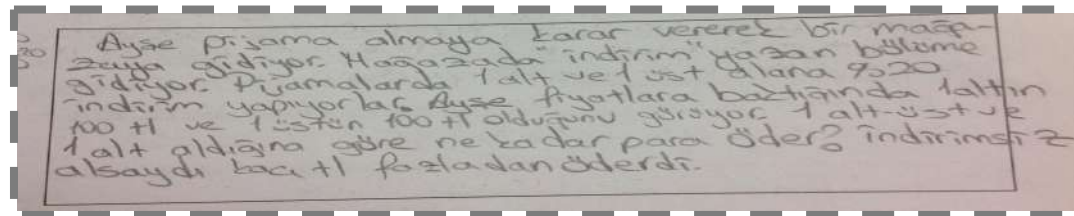 Ayşe pijama almaya karar vererek bir mağa-
zaya gidiyor. Mağazada "indirim" yazan bölüme
gidiyor. Pijamalarda 1 alt ve 1 üst alana %20
indirim yapıyorlar. Ayşe fiyatlara baktığında 1 altın
100 tl ve 1 üstün 100 tl olduğunu görüyor. 1 alt-üst ve
1 alt aldığına göre ne kadar para öder? indirimsiz
alsaydı kaç tl fazladan öderdi.